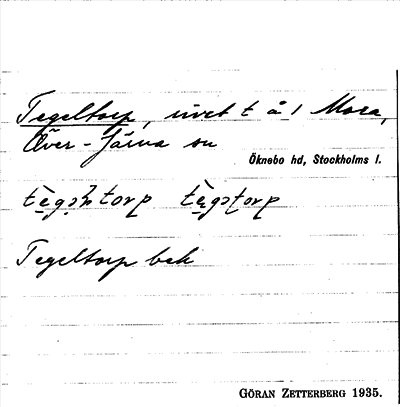 Tegeltorp, urvet t å 1 Mora,
Över-Järna sn
Öknebo hd, Stockholms l.
tegəltorp tegətorp
Tegeltorp bek
GÖRAN ZETTERBERG 1935.